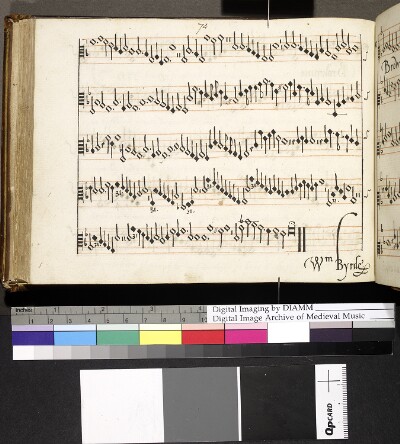 74
Wm Byrde
inches
1 2 3 4
Digital Imaging by DIAMM
Digital Image Archive of Medieval Music
QPCARD